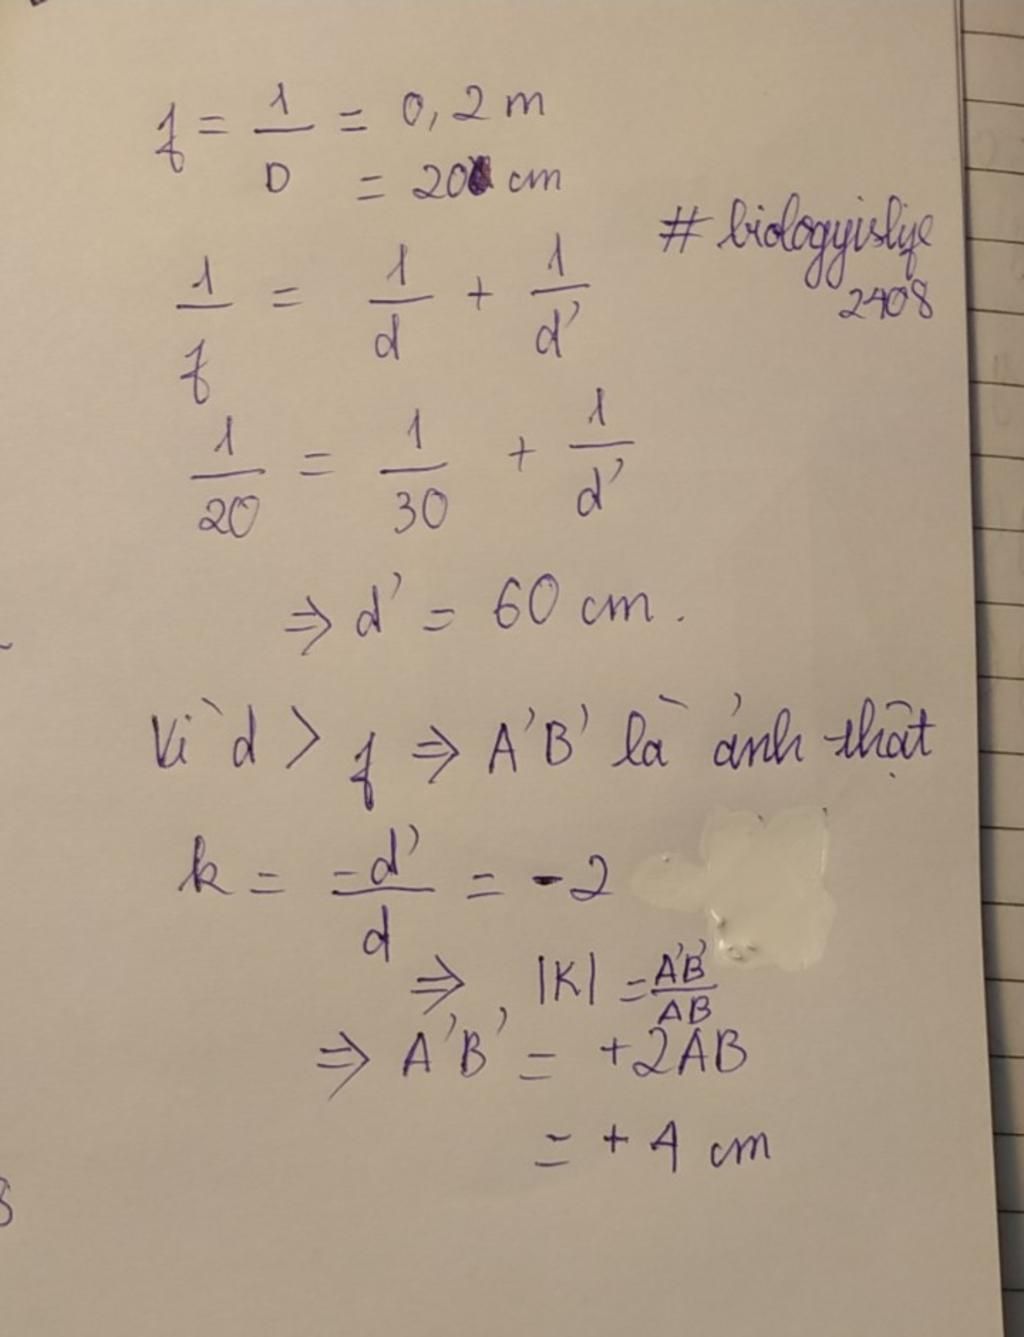 f = 1/D = 0,2 m
= 20 cm
#biologyislife
2408
1/f = 1/d + 1/d'
1/20 = 1/30 + 1/d'
⇒ d' = 60 cm.
Vì d > f ⇒ A'B' là ảnh thật
k = -d'/d = -2
⇒ |K| = A'B'/AB
⇒ A'B' = +2AB
= + 4 cm